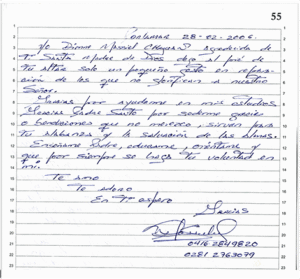 55
28-02-2006.
Yo agradecida de
Ti Santa Madre de Dios dejo al pie de
Tu Altar solo un pequeño gesto en
de los que no a nuestro
Señor.
Gracias por ayudarme en mis estudios
Gracias Padre Santo por gracias
o bendiciones que no merezco, sirvan para
Tu Alabanza y la salvación de las almas.
Enséñame Padre, edúcame, oriéntame y
que por siempre se haga Tu voluntad en
mí.
Te amo
Te adoro
En Ti espero
Gracias
0416 2849820
0281 2763079